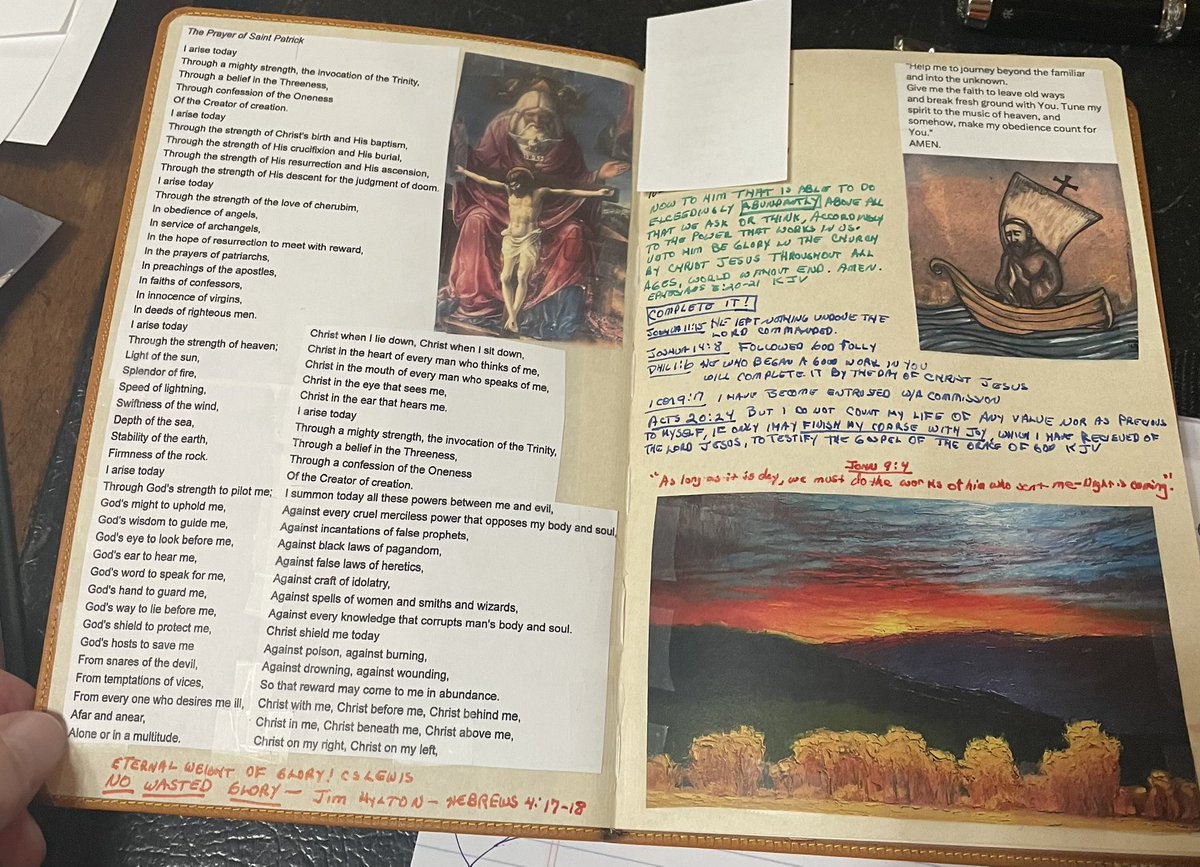 The Prayer of Saint Patrick
I arise today
Through a mighty strength, the invocation of the Trinity,
Through a belief in the Threeness,
Through confession of the Oneness
Of the Creator of creation.
I arise today
Through the strength of Christ's birth and His baptism,
Through the strength of His crucifixion and His burial,
Through the strength of His resurrection and His ascension,
Through the strength of His descent for the judgment of doom.
I arise today
Through the strength of the love of cherubim,
In obedience of angels,
In service of archangels,
In the hope of resurrection to meet with reward,
In the prayers of patriarchs,
In preachings of the apostles,
In faiths of confessors,
In innocence of virgins,
In deeds of righteous men.
I arise today
Through the strength of heaven;
Light of the sun,
Splendor of fire,
Speed of lightning,
Swiftness of the wind,
Depth of the sea,
Stability of the earth,
Firmness of the rock.
I arise today
Through God's strength to pilot me;
God's might to uphold me,
God's wisdom to guide me,
God's eye to look before me,
God's ear to hear me,
God's word to speak for me,
God's hand to guard me,
God's way to lie before me,
God's shield to protect me,
God's hosts to save me
From snares of the devil,
From temptations of vices,
From every one who desires me ill,
Afar and anear,
Alone or in a multitude.
Christ when I lie down, Christ when I sit down,
Christ in the heart of every man who thinks of me,
Christ in the mouth of every man who speaks of me,
Christ in the eye that sees me,
Christ in the ear that hears me.
I arise today
Through a mighty strength, the invocation of the Trinity,
Through a belief in the Threeness,
Through a confession of the Oneness
Of the Creator of creation.
I summon today all these powers between me and evil,
Against every cruel merciless power that opposes my body and soul,
Against incantations of false prophets,
Against black laws of pagandom,
Against false laws of heretics,
Against craft of idolatry,
Against spells of women and smiths and wizards,
Against every knowledge that corrupts man's body and soul.
Christ shield me today
Against poison, against burning,
Against drowning, against wounding,
So that reward may come to me in abundance.
Christ with me, Christ before me, Christ behind me,
Christ in me, Christ beneath me, Christ above me,
Christ on my right, Christ on my left,
ETERNAL WEIGHT OF GLORY! CS LEWIS
NO WASTED GLORY – JIM HYLTON – HEBREWS 4:17-18
"Help me to journey beyond the familiar
and into the unknown.
Give me the faith to leave old ways
and break fresh ground with You. Tune my
spirit to the music of heaven, and
somehow, make my obedience count for
You."
AMEN.
NOW TO HIM THAT IS ABLE TO DO
EXCEEDINGLY ABUNDANTLY ABOVE ALL
THAT WE ASK OR THINK, ACCORDINGLY
TO THE POWER THAT WORKS IN US.
UNTO HIM BE GLORY IN THE CHURCH
BY CHRIST JESUS THROUGHOUT ALL
AGES, WORLD WITHOUT END. AMEN.
EPHESIANS 3:20-21 KJV
COMPLETE IT!
JOSHUA 11:15 HE LEFT NOTHING UNDONE THE
LORD COMMANDED.
JOSHUA 14:8 FOLLOWED GOD FULLY
PHIL 1:6 HE WHO BEGAN A GOOD WORK IN YOU
WILL COMPLETE IT BY THE DAY OF CHRIST JESUS
1 COR 9:17 I HAVE BECOME ENTRUSED W/A COMMISSION
ACTS 20:24 BUT I DO NOT COUNT MY LIFE OF ANY VALUE NOR AS PRECIOUS
TO MYSELF, IF ONLY I MAY FINISH MY COARSE WITH JOY, WHICH I HAVE RECIEVED OF
THE LORD JESUS, TO TESTIFY THE GOSPEL OF THE GRACE OF GOD KJV
John 9:4
"As long as it is day, we must do the works of him who sent me – Night is coming."